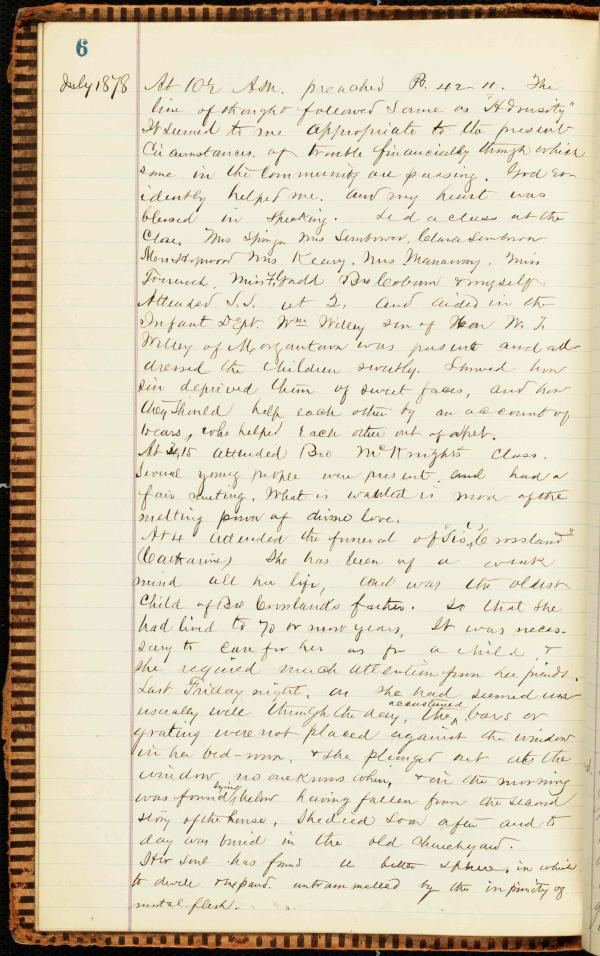 6
July 1878 At 10½ A.M. preached Ps. 42-11. The
line of thought followed same as "Adversity"
It seemed to me appropriate to the present
Circumstances of trouble financially through which
some in the Community are passing. God ev-
idently helped me. and my heart was
blessed in speaking. Led a class at the
Close. Mrs Mrs Clara
Mrs Hopwood Mrs Keary. Mrs Miss
Miss Gadd Bro Coburn & myself.
Attended S.S. at 2. and aided in the
Infant Dept. Wm Willey son of Hon W. T.
Willey of Morgantown was present and ad-
dressed the Children sweetly. Showed how
sin deprived them of sweet faces, and how
they should help each other by an account of
who helped Each other out of a
At attended Bro McKnights Class.
Several young people were present. and had a
fair meeting. What is wanted is more of the
melting power of divine love.
At 4 attended the funeral of "Sis" Crossland"
(Catharine) She has been of a weak
mind all her life, and was the oldest
Child of Bro Crosslands father. So that she
had lived to 70 or more years. It was neces-
sary to care for her as for a child &
she required much attention from her friends.
Last Friday night, as she had seemed un-
usually well through the day, the accustomed bars or
grating were not placed against the window
in her bed-room, & she plunged out at the
window no one knows when, & in the morning
was found lying below having fallen from the second
story of the house, She died soon after and to
day was buried in the old Churchyard.
Her soul has found a better sphere, in which
to & expand. untrammelled by the of
mortal flesh.